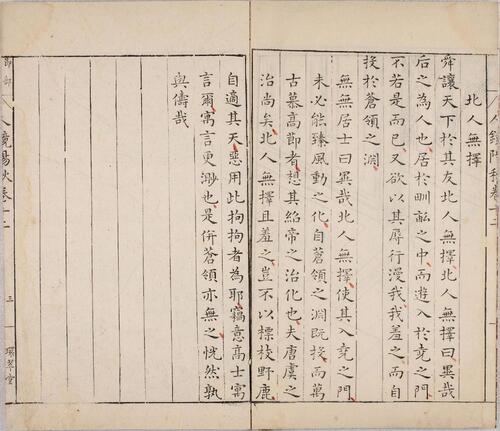 人鏡陽秋卷十二
北人無擇
舜讓天下於其友北人無擇北人無擇曰異哉
后之為人也居於畎畝之中而遊入於堯之門
不若是而已又欲以其辱行漫我我羞之而自
投於蒼領之淵
無無居士曰異哉北人無擇使其入堯之門
未必能臻風動之化自蒼領之淵既投而萬
古慕高節者想其紹帝之治化也夫唐虞之
治尚矣北人無擇且羞之豈不以標枝野鹿
自適其天惡用此拘拘者為耶竊意高士寓
言爾寓言更渺也是併蒼領亦無之恍然孰
與儔哉
節部
人鏡陽秋卷十二
三
環翠堂